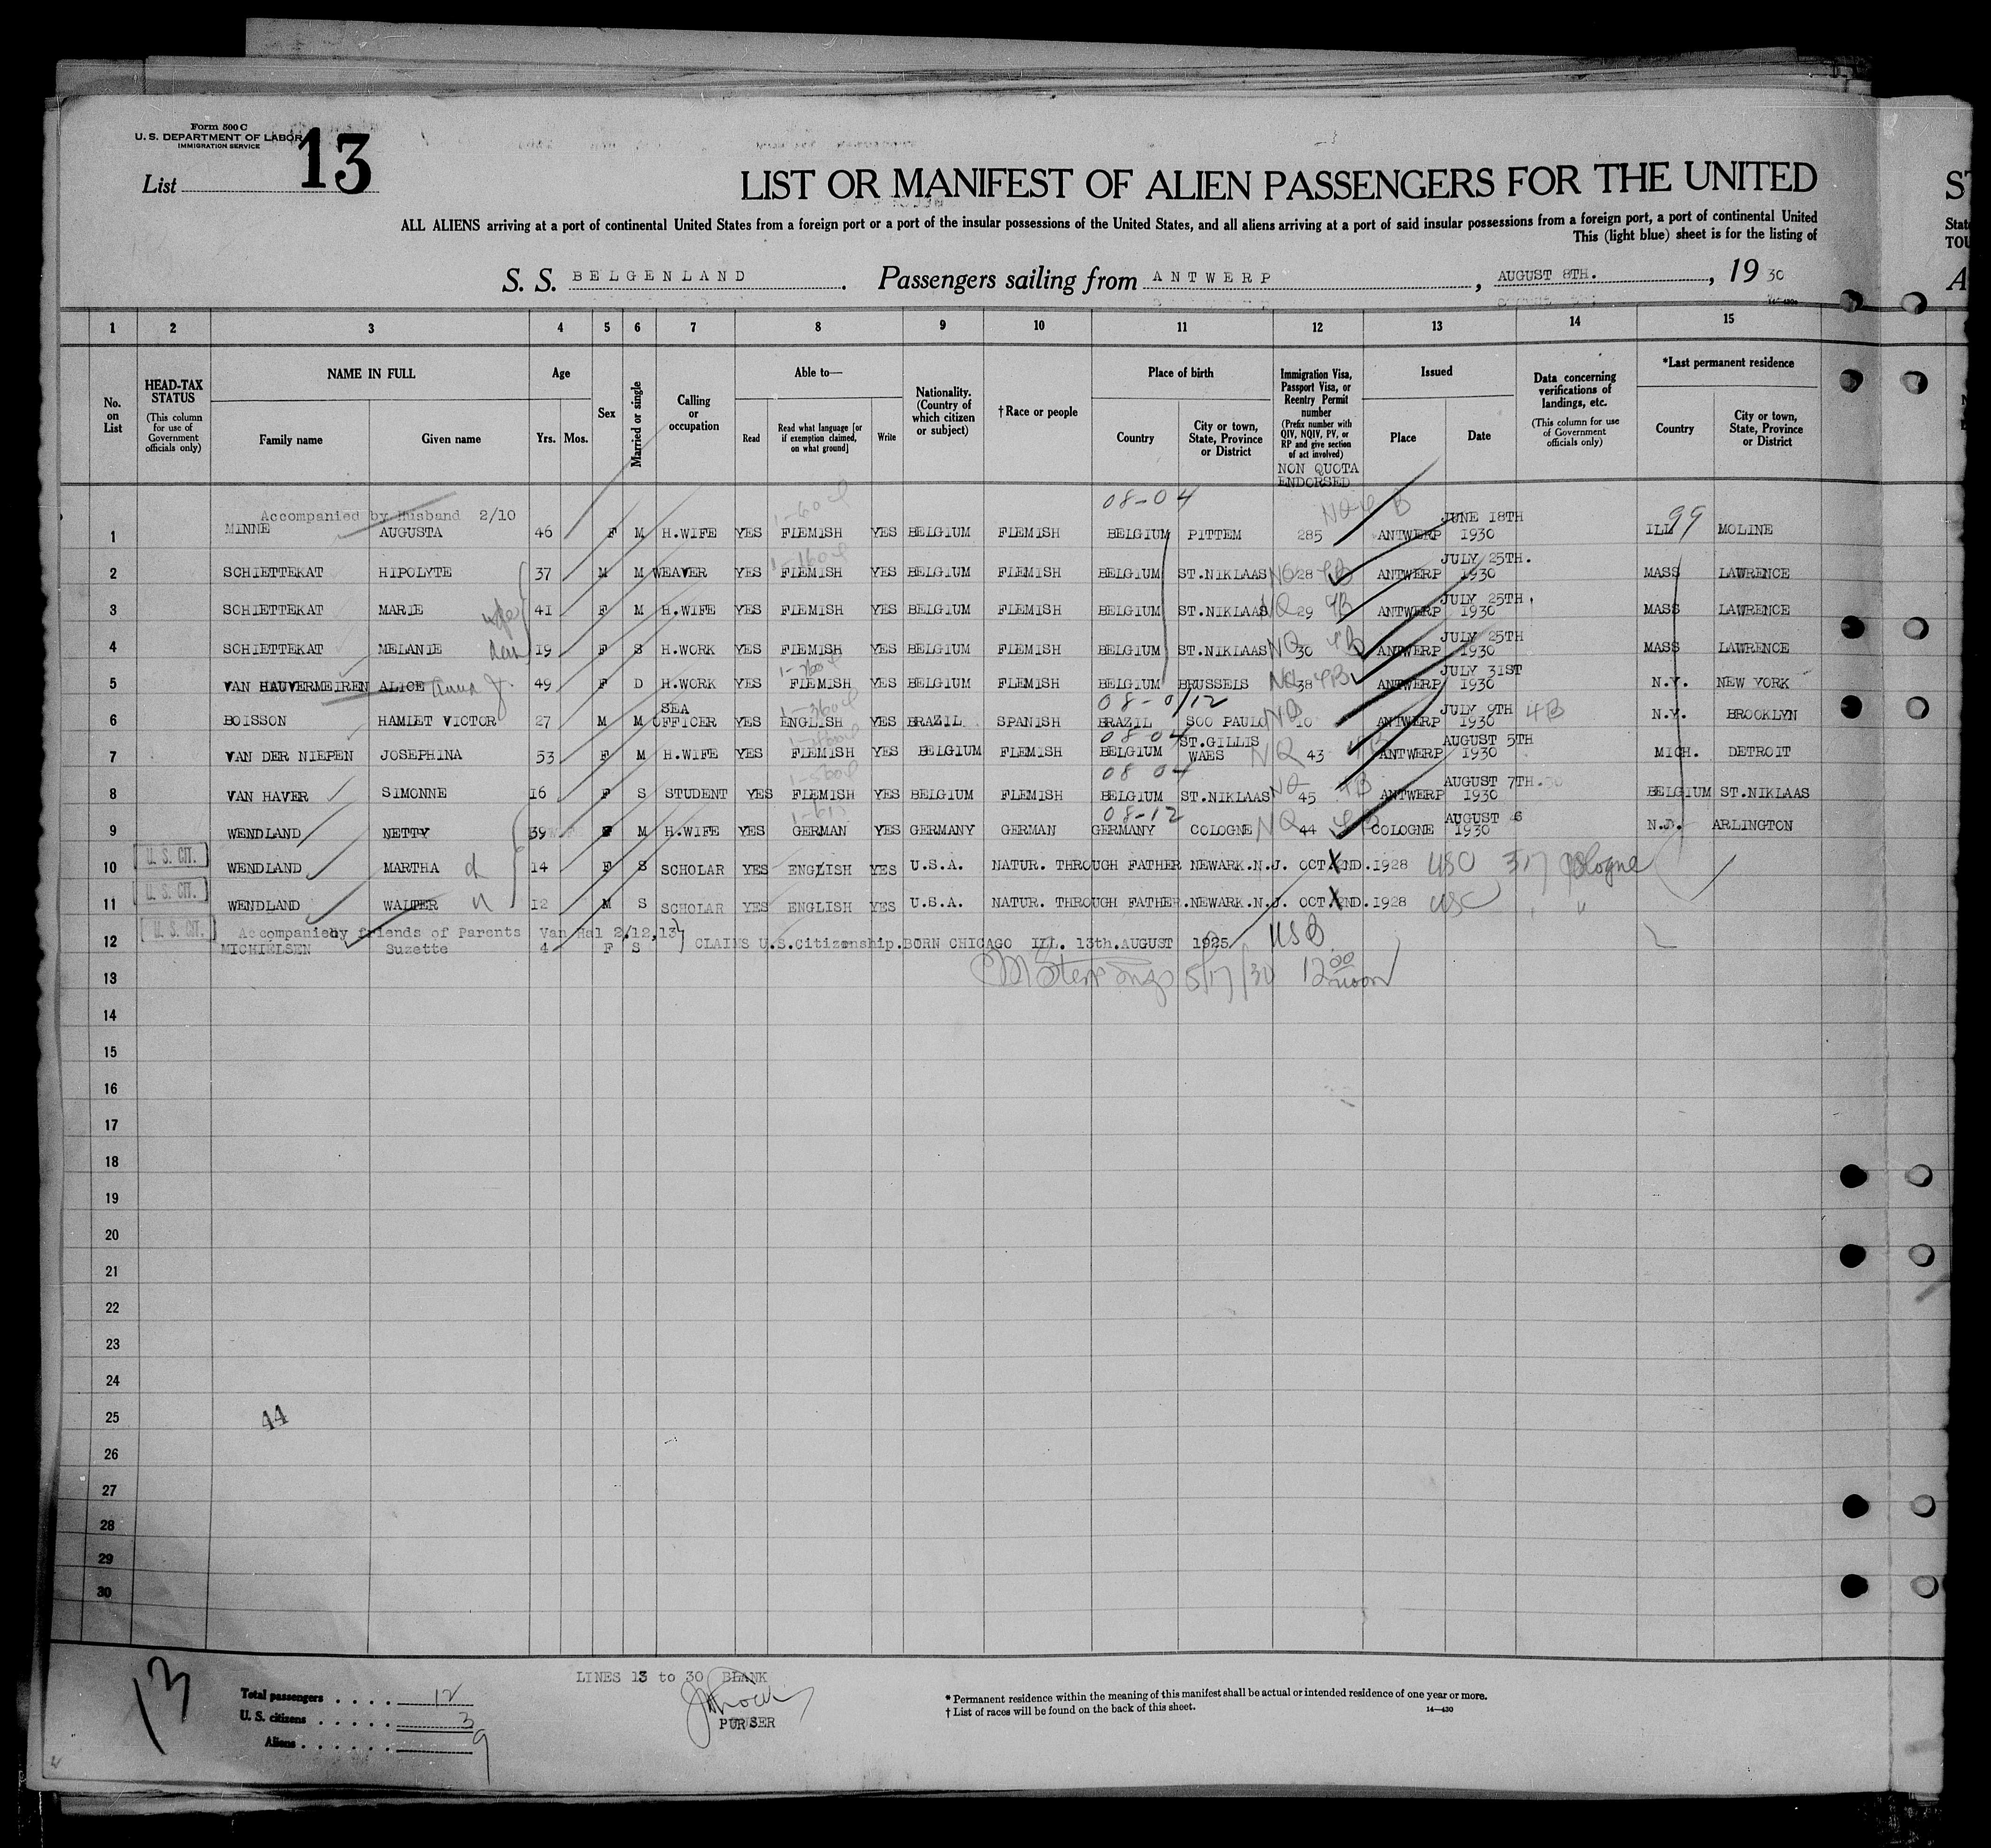 Form 500 C
U. S. DEPARTMENT OF LABOR
IMMIGRATION SERVICE
List 13
LIST OR MANIFEST OF ALIEN PASSENGERS FOR THE UNITED
ALL ALIENS arriving at a port of continental United States from a foreign port or a port of the insular possessions of the United States, and all aliens arriving at a port of said insular possessions from a foreign port, a port of continental United
This (light blue) sheet is for the listing of
S. S. BELGENLAND. Passengers sailing from ANTWERP, AUGUST 8TH., 19 30
1 2 3 4 5 6 7 8 9 10 11 12 13 14 15
No. on List
HEAD-TAX STATUS (This column for use of Government officials only)
NAME IN FULL
Family name Given name
Age
Yrs. Mos.
Sex
Married or single
Calling or occupation
Able to—
Read Read what language [or if exemption claimed, on what ground] Write
Nationality. (Country of which citizen or subject)
† Race or people
Place of birth
Country City or town, State, Province or District
Immigration Visa, Passport Visa, or Reentry Permit number (Prefix number with QIV, NQIV, PV, or RP and give section of act involved)
NON QUOTA ENDORSED
Issued
Place Date
Data concerning verifications of landings, etc. (This column for use of Government officials only)
*Last permanent residence
Country City or town, State, Province or District
08-04
Accompanied by Husband 2/10
1 MINNE AUGUSTA 46 F M H.WIFE YES FLEMISH YES BELGIUM FLEMISH BELGIUM PITTEM 285 NQ 4 B ANTWERP JUNE 18TH 1930 ILL 99 MOLINE
2 SCHIETTEKAT HIPOLYTE 37 M M WEAVER YES FLEMISH YES BELGIUM FLEMISH BELGIUM ST.NIKLAAS NQ 28 4B ANTWERP JULY 25TH. 1930 MASS LAWRENCE
3 SCHIETTEKAT MARIE wife 41 F M H.WIFE YES FLEMISH YES BELGIUM FLEMISH BELGIUM ST.NIKLAAS NQ 29 4B ANTWERP JULY 25TH. 1930 MASS LAWRENCE
4 SCHIETTEKAT MELANIE 19 F S H.WORK YES FLEMISH YES BELGIUM FLEMISH BELGIUM ST.NIKLAAS NQ 30 4B ANTWERP JULY 25TH 1930 MASS LAWRENCE
5 VAN HAUVERMEIREN ALICE Anna 49 F D H.WORK YES FLEMISH YES BELGIUM FLEMISH BELGIUM BRUSSELS NQ 38 4B ANTWERP JULY 31ST 1930 N.Y. NEW YORK
08-0/12
6 BOISSON HAMLET VICTOR 27 M M SEA OFFICER YES ENGLISH YES BRAZIL SPANISH BRAZIL SOO PAULO NQ 10 ANTWERP JULY 9TH 1930 4B N.Y. BROOKLYN
08 04
7 VAN DER NIEPEN JOSEPHINA 53 F M H.WIFE YES FLEMISH YES BELGIUM FLEMISH BELGIUM ST.GILLIS WAES NQ 43 4B ANTWERP AUGUST 5TH 1930 MICH. DETROIT
08 04
8 VAN HAVER SIMONNE 16 F S STUDENT YES FLEMISH YES BELGIUM FLEMISH BELGIUM ST.NIKLAAS NQ 45 4B ANTWERP AUGUST 7TH. 1930 BELGIUM ST.NIKLAAS
08-12
9 WENDLAND NETTY 39 F M H.WIFE YES GERMAN YES GERMANY GERMAN GERMANY COLOGNE NQ 44 4B COLOGNE AUGUST 6 1930 N.D. ARLINGTON
10 U. S. CIT. WENDLAND MARTHA d 14 F S SCHOLAR YES ENGLISH YES U.S.A. NATUR. THROUGH FATHER NEWARK.N.J. OCT.22ND.1928 USC 317 Cologne
11 U. S. CIT. WENDLAND WALTER 12 M S SCHOLAR YES ENGLISH YES U.S.A. NATUR. THROUGH FATHER.NEWARK.N.J. OCT.22ND.1928 USC " "
Accompanied by friends of Parents Van Hal 2/12,13
12 U. S. CIT. MICHIELSEN Suzette 4 F S CLAIMS U.S.citizenship.BORN CHICAGO ILL. 13th.AUGUST 1925 USB
13 5/17/30 12 00 noon
14
15
16
17
18
19
20
21
22
23
24
25 44
26
27
28
29
30
13
LINES 13 to 30 BLANK
PURSER
Total passengers 12
U. S. citizens 3
Aliens 9
* Permanent residence within the meaning of this manifest shall be actual or intended residence of one year or more.
† List of races will be found on the back of this sheet.
14—430